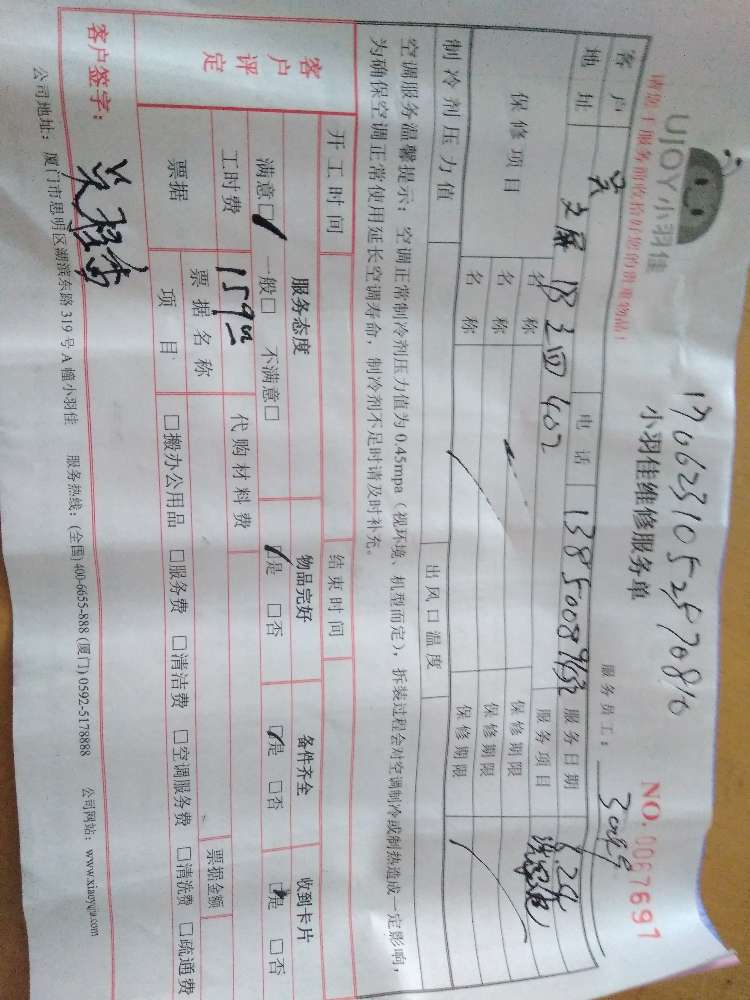 UJOY小羽佳
请您于服务前收拾好您的贵重物品!
1706231052570810
小羽佳维修服务单
NO.0067697
服务员工:
客户 吴 电话 服务日期 8.24
地址 402 服务项目
保修项目 名称 保修期限
名称 保修期限
名称 保修期限
制冷剂压力值 出风口温度
空调服务温馨提示:空调正常制冷剂压力值为0.45mpa(视环境、机型而定),拆装过程会对空调制冷或制热造成一定影响,
为确保空调正常使用延长空调寿命,制冷剂不足时请及时补充。
开工时间 结束时间
客户评定 服务态度 物品完好 备件齐全 收到卡片
满意□ 一般□ 不满意□ □是 □否 □是 □否 □是 □否
工时费 159 代购材料费
票据 票据名称 票据金额
项目 □搬办公用品 □服务费 □清洁费 □空调服务费 □清洗费 □疏通费
客户签字:
公司地址:厦门市思明区湖滨东路319号A幢小羽佳 服务热线:(全国)400-6655-888 (厦门)0592-5178888 公司网站:www.xiaoyujia.com